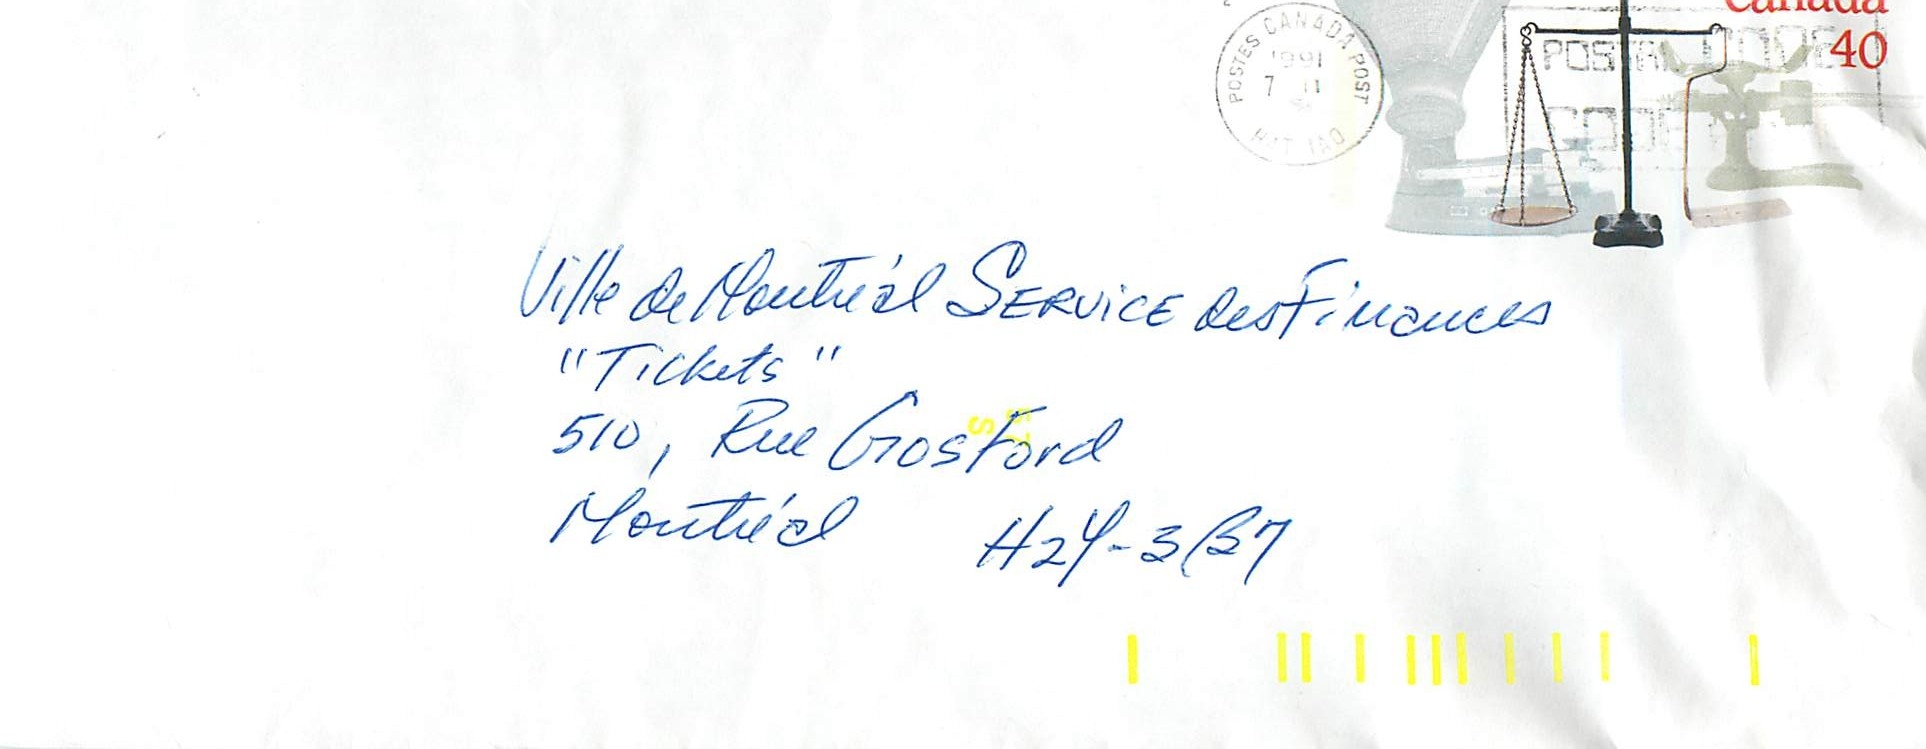 Canada
40
POSTES CANADA POST
1991
7 II
POSTAL CODE
Ville de Montréal SERVICE des Finances
"Tickets"
510, Rue Gosford
Montréal H2Y-3B7